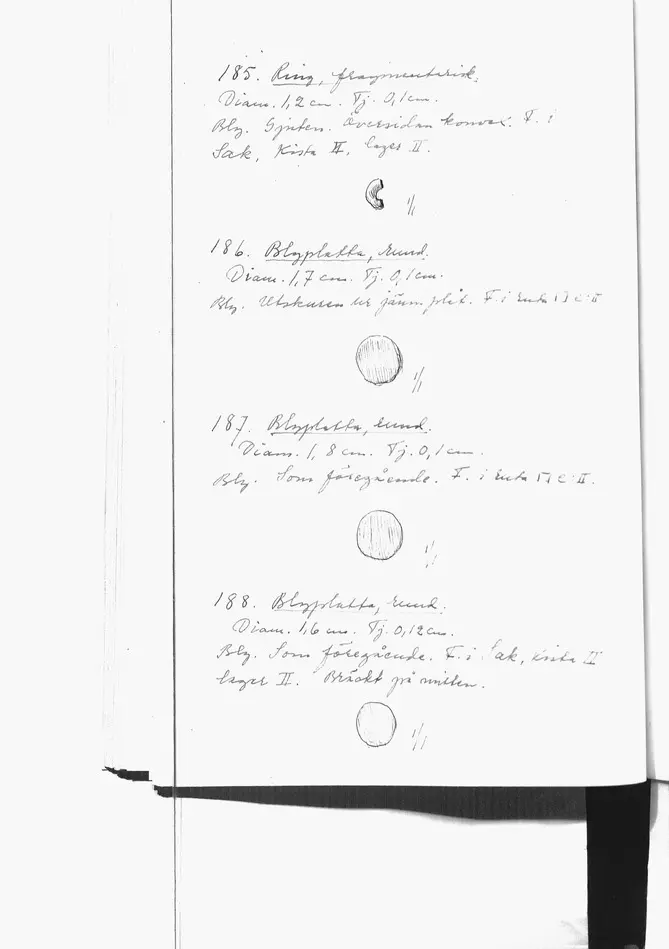 185. Ring, fragmentarisk.
Diam. 1,2 cm. Tj. 0,1 cm.
Bly. Gjuten. Översidan konvex. F. i
Sak, Kista II, lager II.
1/1
186. Blyplatta, rund.
Diam. 1,7 cm. Tj. 0,1 cm.
Bly. Utskuren ur jämn plåt. F. i ruta II
1/1
187. Blyplatta, rund.
Diam. 1,8 cm. Tj. 0,1 cm.
Bly. Som föregående. F. i ruta II.
1/1
188. Blyplatta, rund.
Diam. 1,6 cm. Tj. 0,12 cm.
Bly. Som föregående. F. i Sak, Kista II
lager II. Bräckt på mitten.
1/1